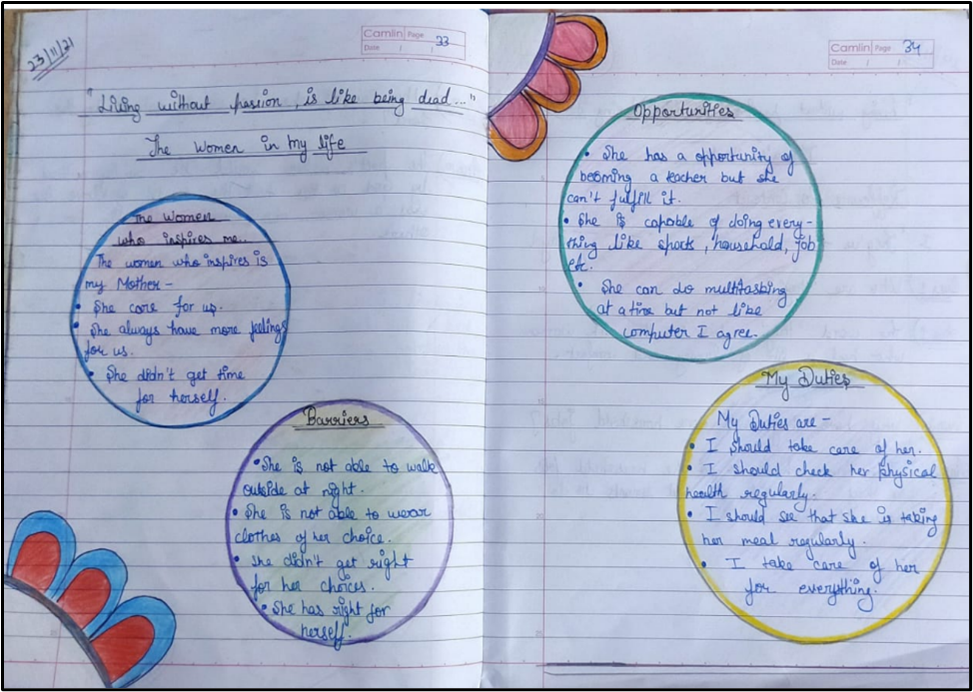 23/11/21
Camlin Page 33
Date / /
"Living without passion, is like being dead..."
The Women in my life
The Women
who inspires me..
The women who inspires is
my Mother -
• She care for us.
• She always have more feelings
for us.
• She didn't get time
for herself.
Barriers
• She is not able to walk
outside at night.
• She is not able to wear
clothes of her choice.
• She didn't get right
for her choices.
• She has right for
herself.
Camlin Page 34
Date / /
Opportunities
• She has a opportunity of
becoming a teacher but she
can't fulfill it.
• She is capable of doing every-
thing like , household, job
etc.
• She can do multitasking
at a time but not like
computer I agree.
My Duties
My Duties are -
• I should take care of her.
• I should check her physical
health regularly.
• I should see that she is taking
her meal regularly.
• I take care of her
for everything.